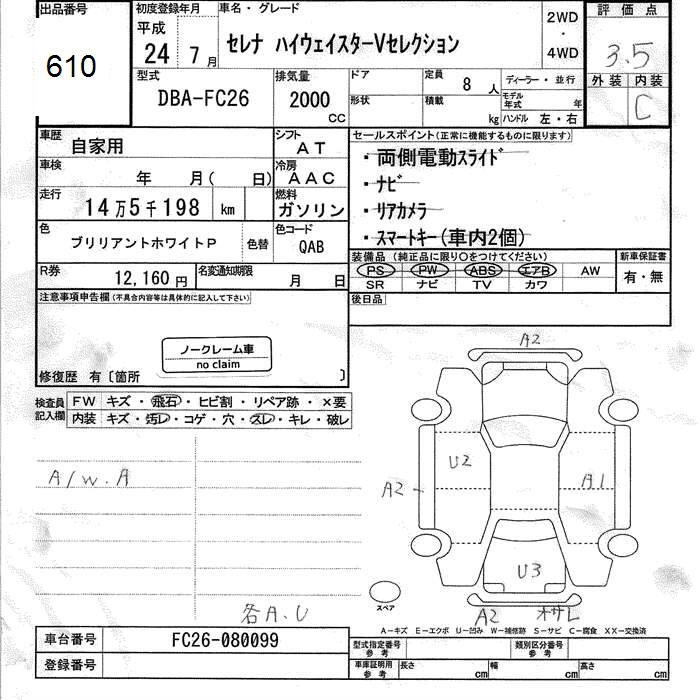 出品番号
610
初度登録年月
平成
24 7月
車名・グレード
セレナ ハイウェイスターVセレクション
2WD
・
4WD
評価点
3.5
外装 内装
C
型式
DBA-FC26
排気量
2000
CC
ドア
形状
定員
8 人
積載
kg
ディーラー・並行
モデル年式 年
ハンドル 左・右
車歴
自家用
シフト
AT
車検
年 月( 日)
冷房
AAC
走行
14万5千198 km
燃料
ガソリン
色
ブリリアントホワイトP
色替
色コード
QAB
R券
12,160円
名変通知期限
月 日
セールスポイント(正常に機能するものに限ります)
・両側電動スライド
・ナビ
・リアカメラ
・スマートキー(車内2個)
装備品(純正品に限り〇をつけてください)
PS PW ABS エアB AW
SR ナビ TV カワ
新車保証書
有・無
後日品
注意事項申告欄(不具合内容等は具体的に記入して下さい)
ノークレーム車
no claim
修復歴 有〔箇所 〕
検査員記入欄
FW キズ・飛石・ヒビ割・リペア跡・×要
内装 キズ・汚レ・コゲ・穴・スレ・キレ・破レ
A/W.A
各A.U
A2
U2
A2
A1
U3
A2
オサレ
スペア
A−キズ E−エクボ U−凹み W−補修跡 S−サビ C−腐食 XX−交換済
車台番号
FC26-080099
登録番号
型式指定番号
参考
類別区分番号
参考
車庫証明用
参考
長さ cm
幅 cm
高さ cm